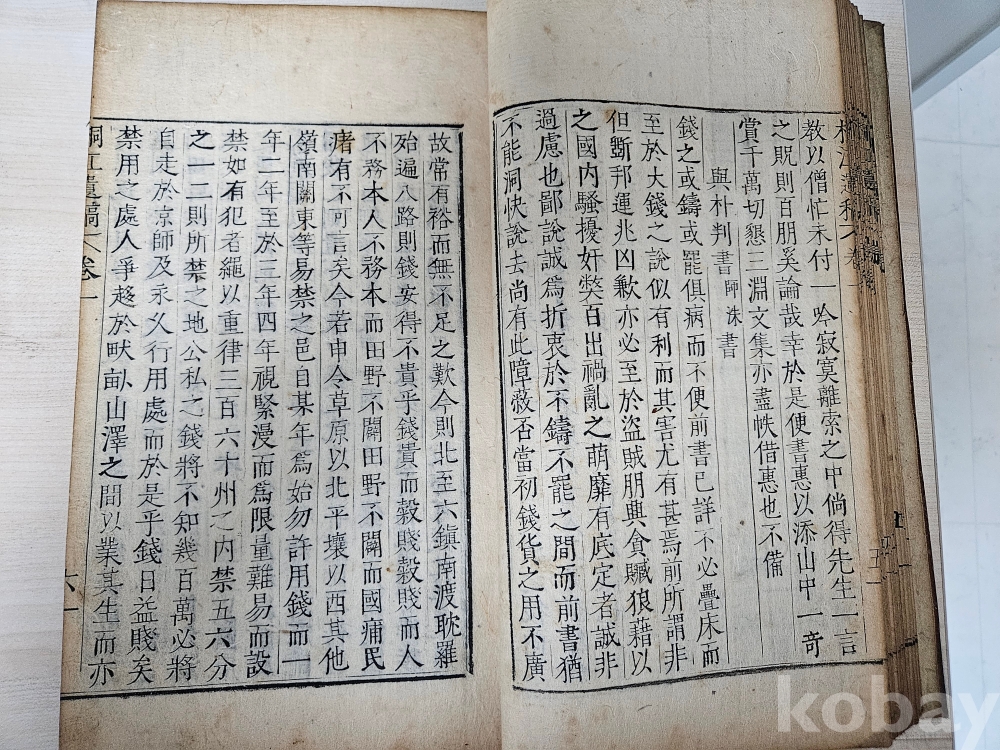 桐江遺稿 卷一
教以僧忙未付一吟寂寞離索之中倘得先生一言
之貺則百朋奚論哉幸於是便書惠以添山中一奇
賞千萬切懇三淵文集亦盡帙借惠也不備
與朴判書師洙書
錢之或鑄或罷俱病而不便前書已詳不必疊床而
至於大錢之說似有利而其害尤有甚焉前所謂非
但斷邦運兆凶歉亦必至於盜賊朋興貪贓狼藉以
之國內騷擾奸獘百出禍亂之萌靡有底定者誠非
過慮也鄙說誠爲折衷於不鑄不罷之間而前書猶
不能洞快說去尚有此嶂蔽否當初錢貨之用不廣
故常有裕而無不足之歎今則北至六鎮南渡耽羅
殆遍八路則錢安得不貴乎錢貴而穀賤穀賤而人
不務本人不務本而田野不闢田野不闢而國痡民
瘏有不可言矣今若申令草原以北平壤以西其他
嶺南關東等易禁之邑自某年爲始勿許用錢而一
年二年至於三年四年視緊漫而爲限量難易而設
禁如有犯者繩以重律三百六十州之內禁五六分
之一二則所禁之地公私之錢將不知幾百萬必將
自走於京師及永乂行用處而於是乎錢日益賤矣
禁用之處人爭趍於畎畝山澤之間以業其生而亦
桐江遺稿 卷一 六
kobay